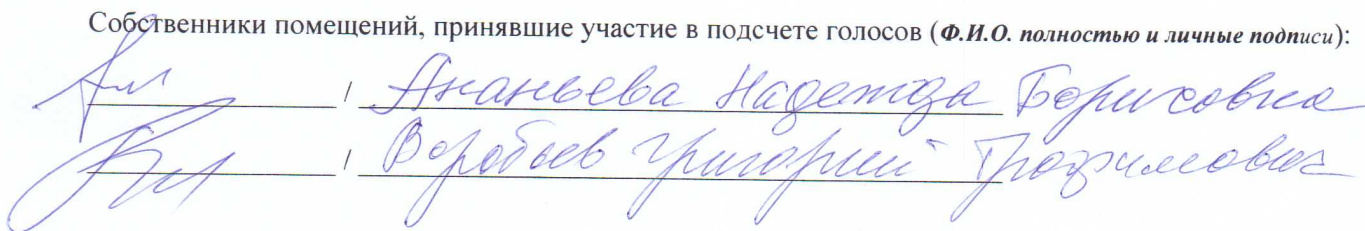 Собственники помещений, принявшие участие в подсчете голосов (Ф.И.О. полностью и личные подписи):
/ Ананьева Надежда Борисовна
/ Воробьев Григорий Трофимович